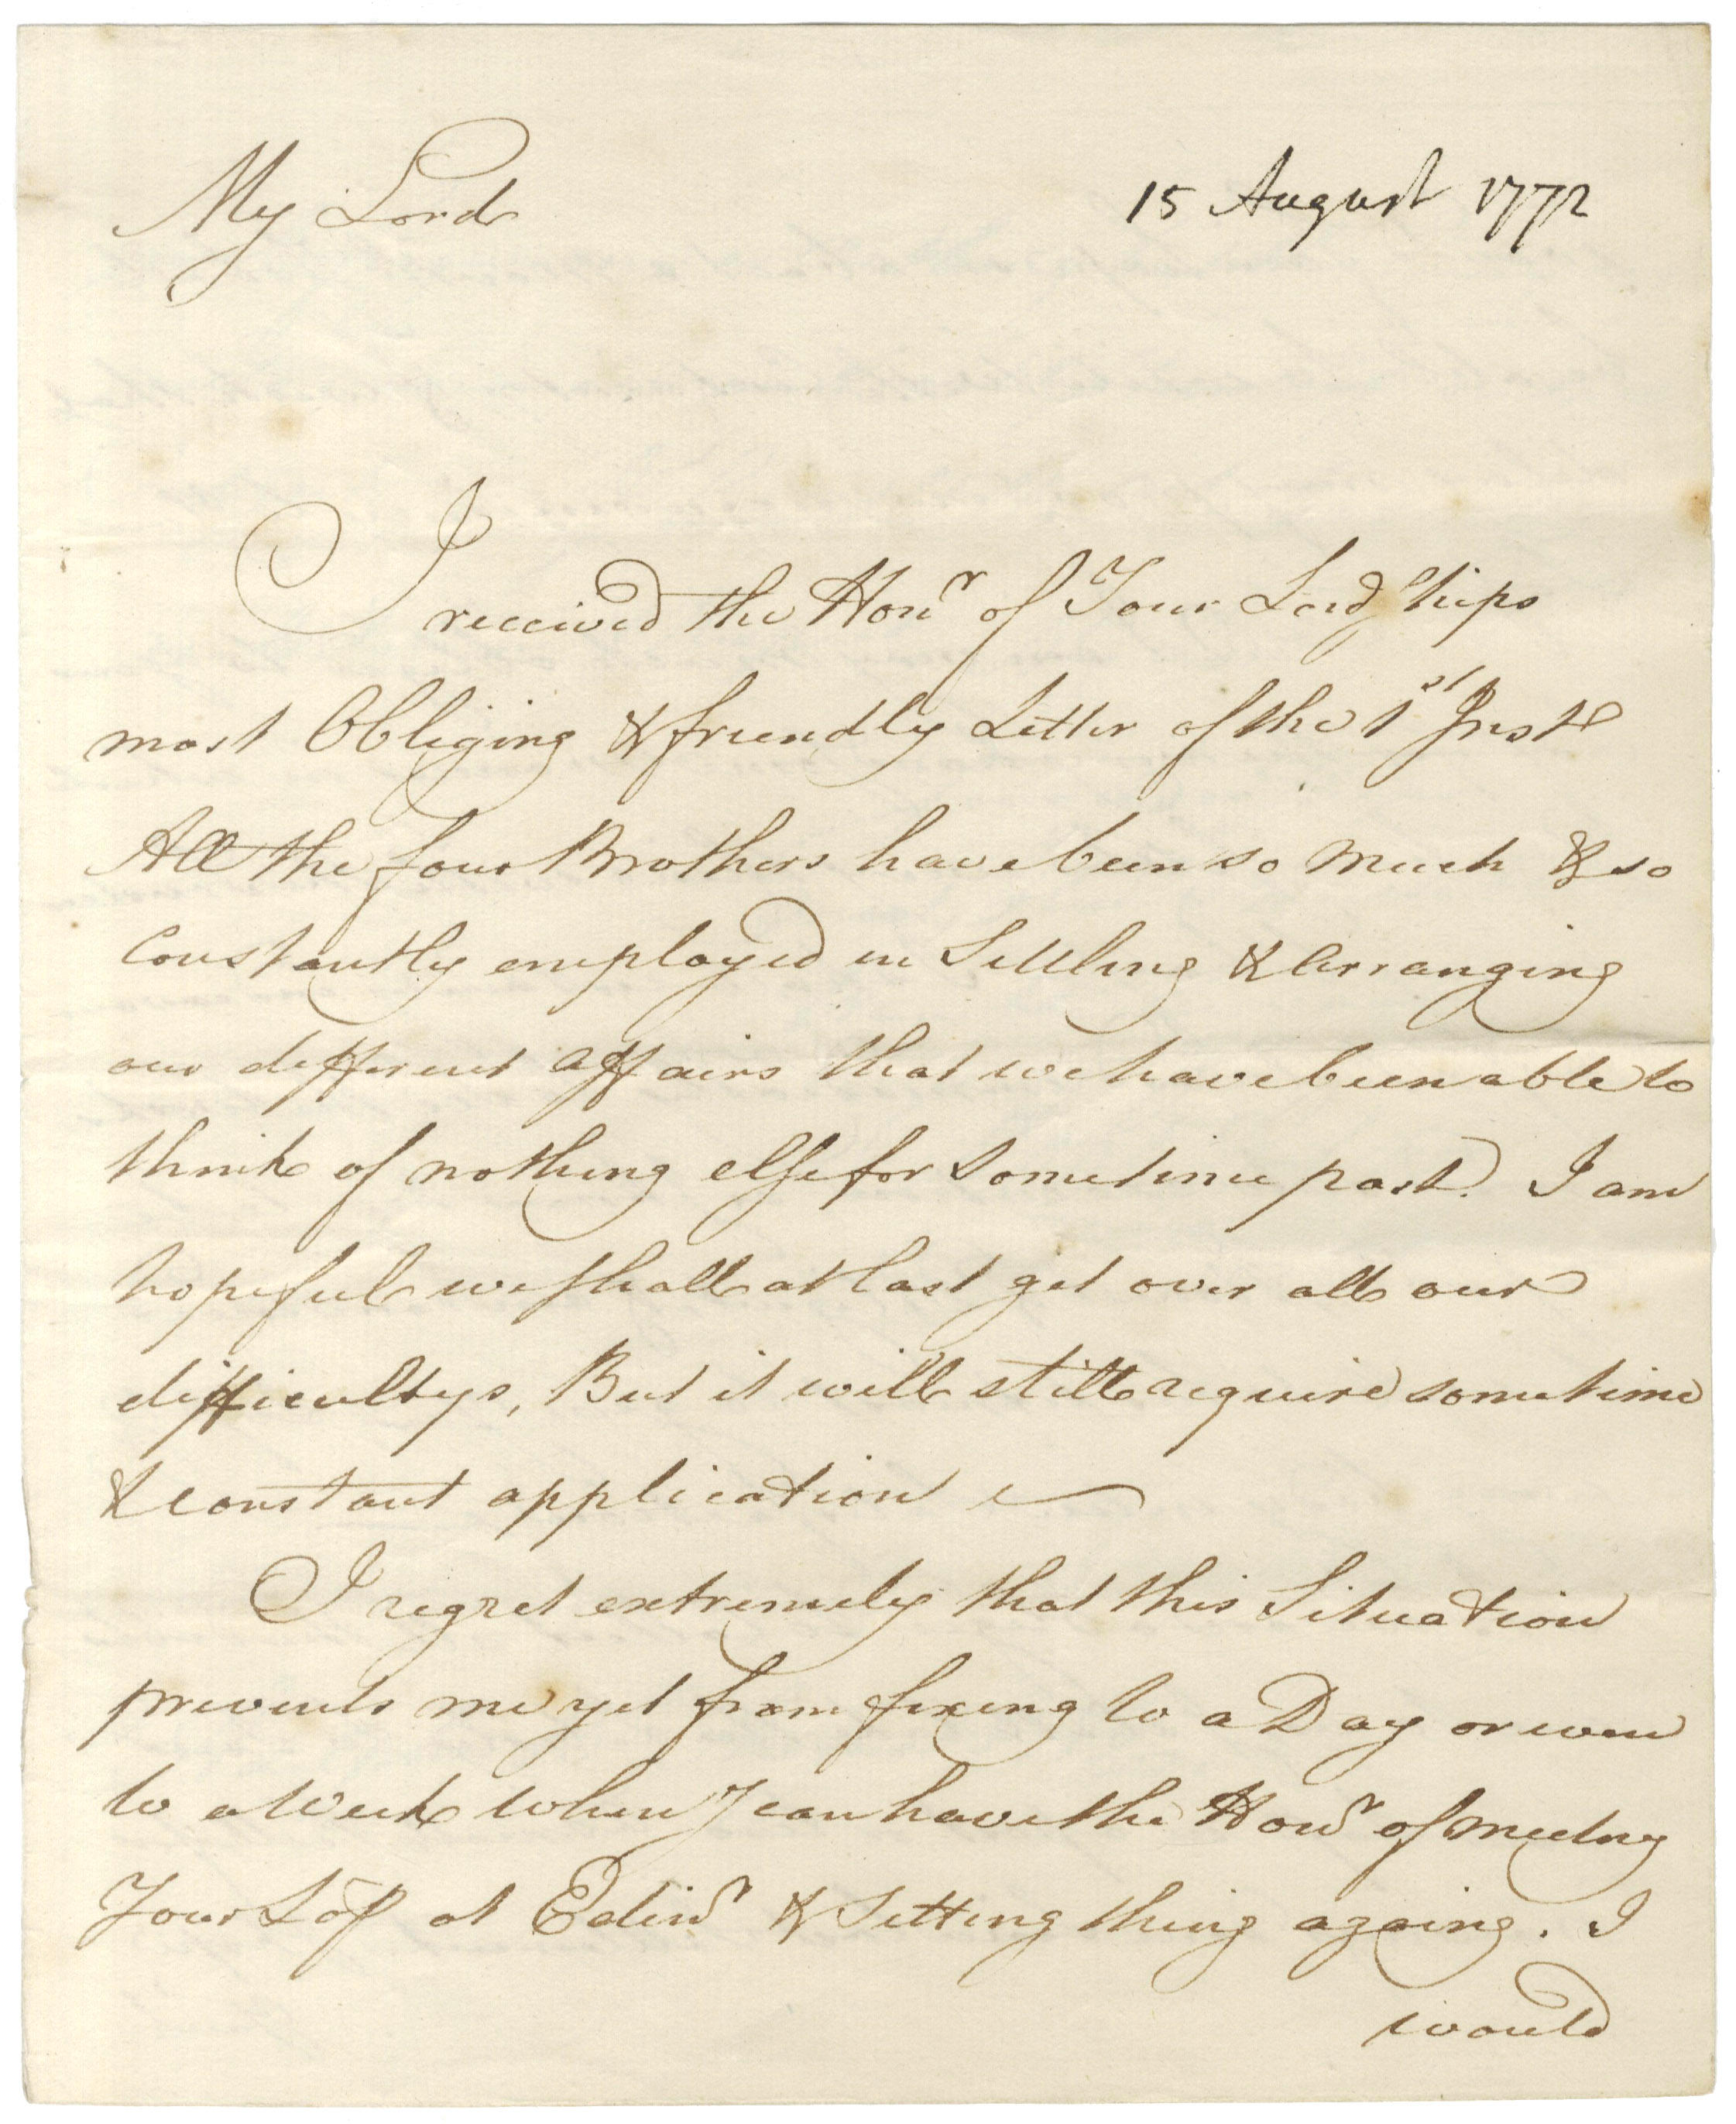 My Lord 15 August 1772
I received the Honr of Your Lordships
most Obliging & friendly Letter of the 1st Inst
All the four Brothers have been so much & so
Constantly employed in Settling & Arranging
our different affairs that we have been able to
think of nothing else for sometime past. I am
hopeful we shall at last get over all our
difficultys, But it will still require sometime
& constant application
I regret extremely that this Situation
prevents me yet from fixing to a Day or even
to a Week when I can have the Honr of meeting
Your Lop at Edinr & Setting thing agoing. I
would